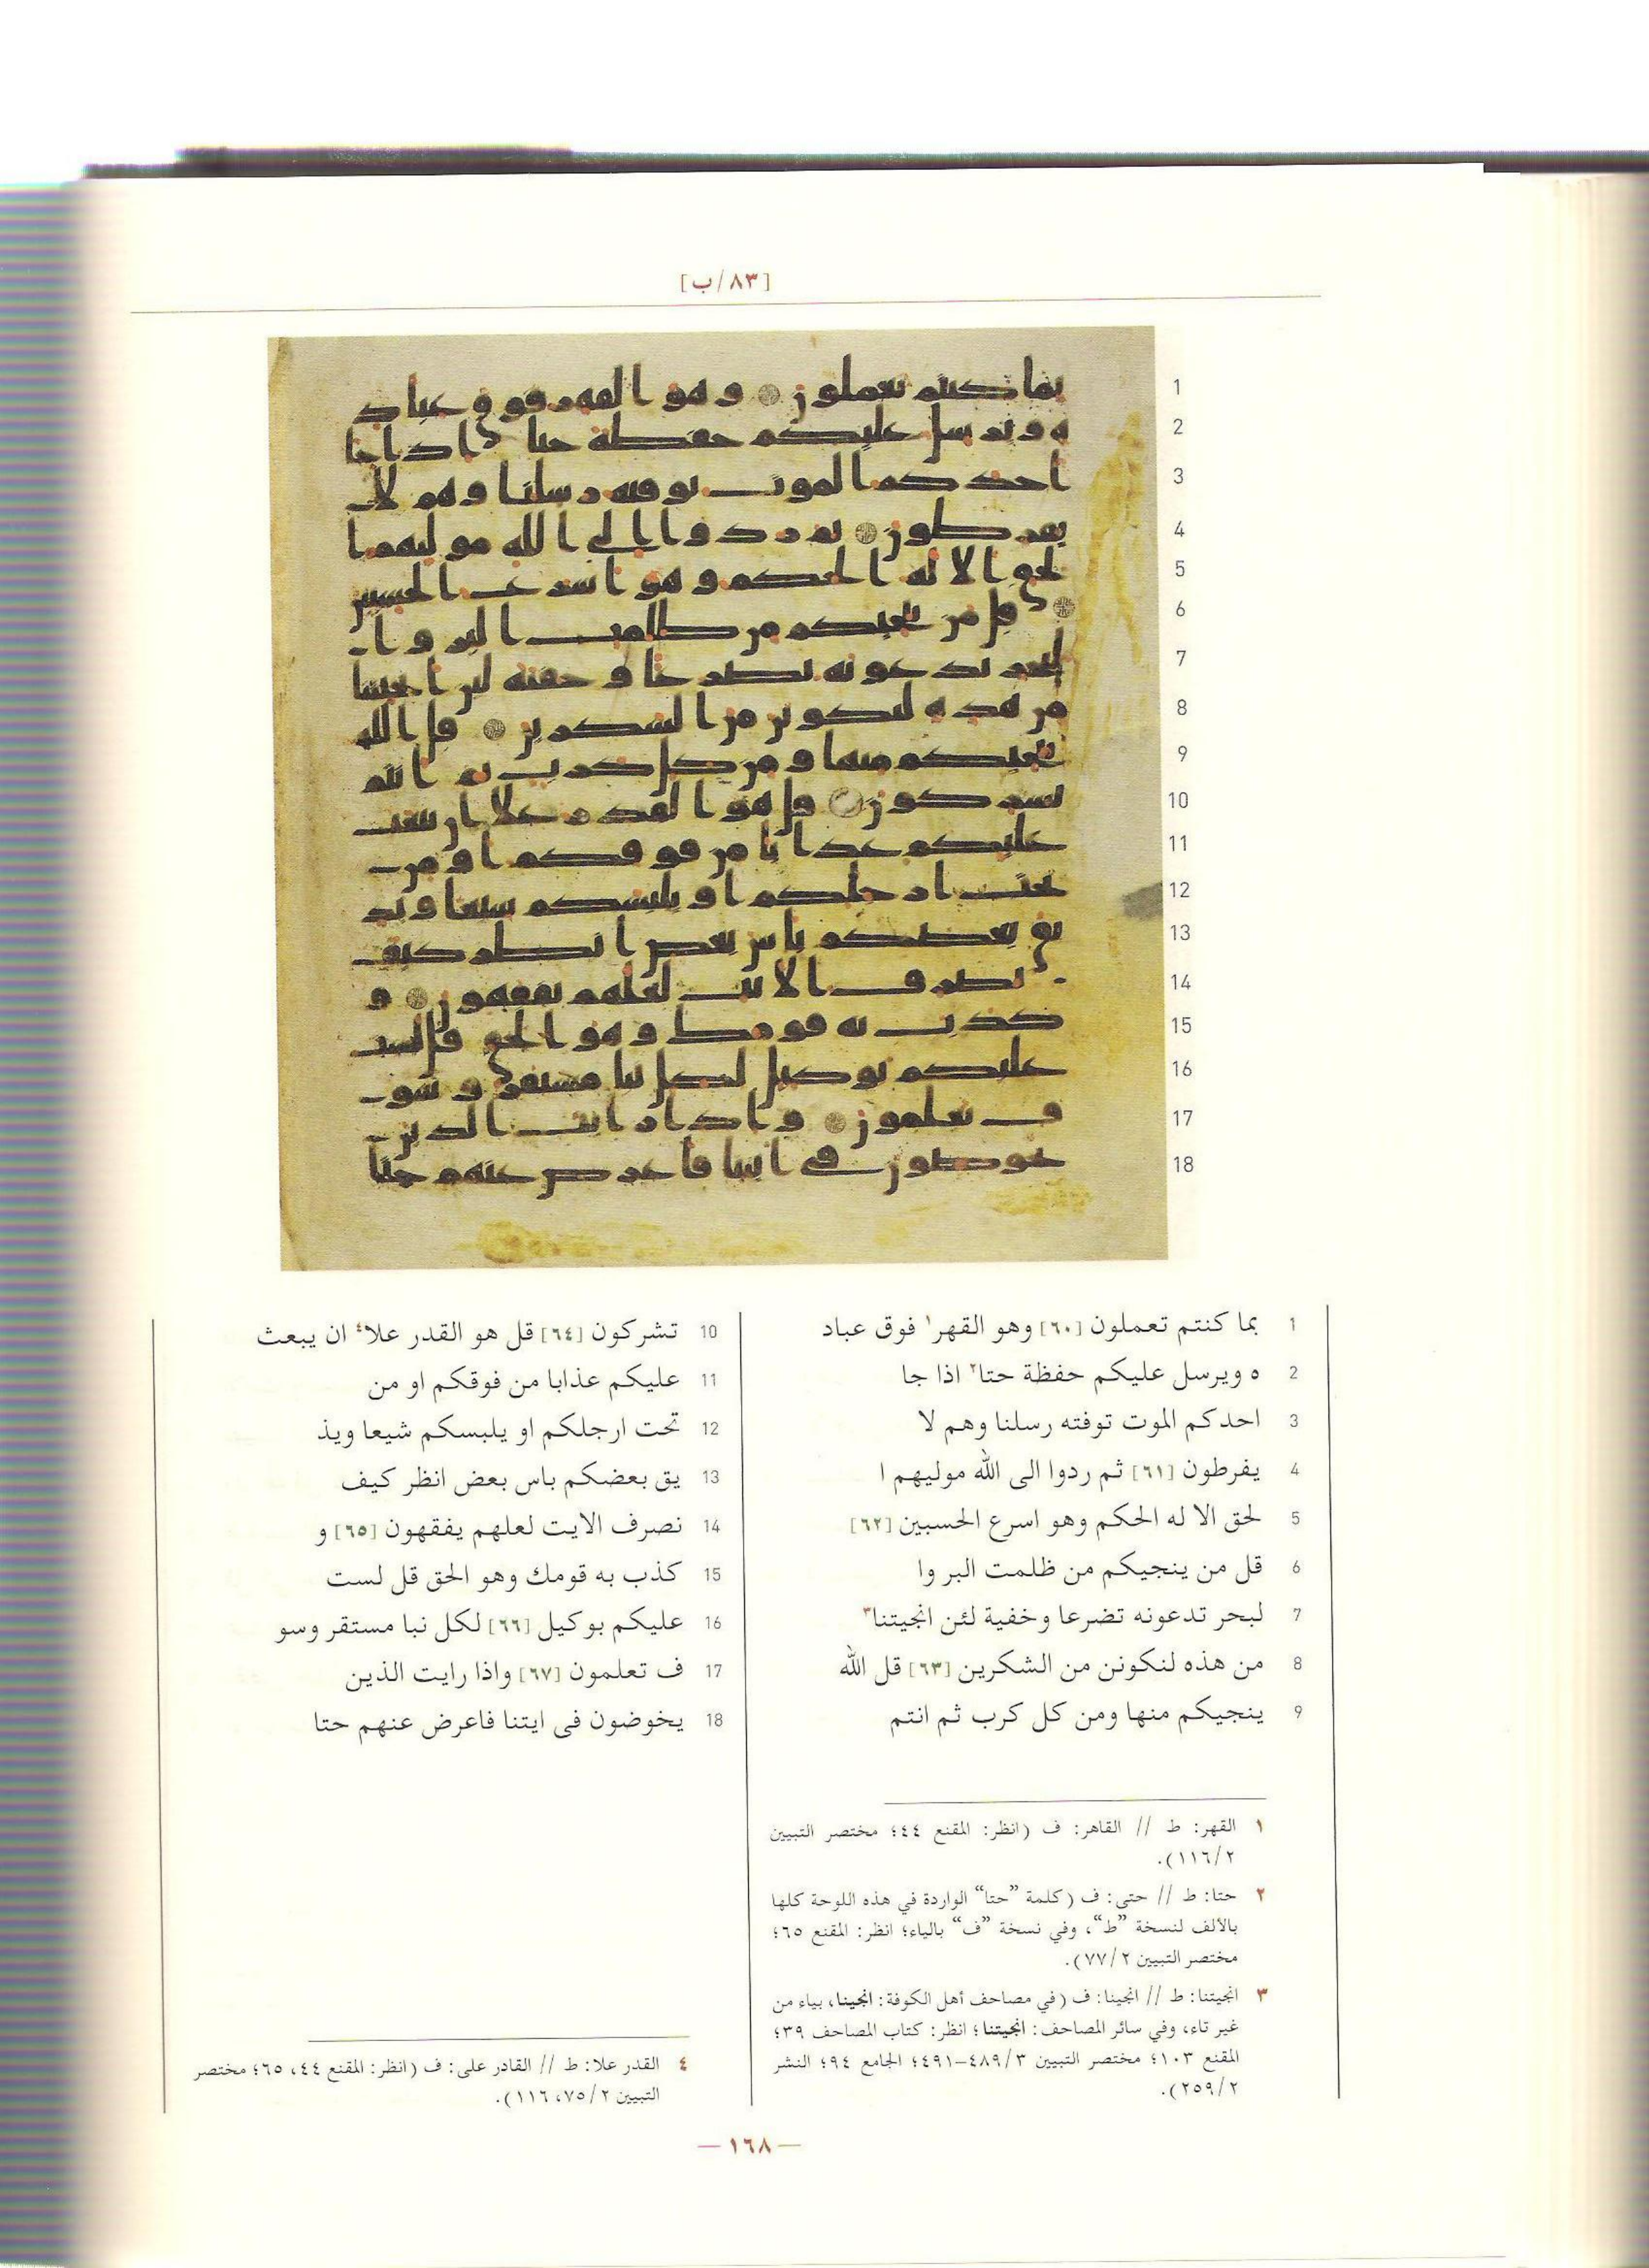 [٨٣/ب]
1 بما كنتم تعملون [٦٠] وهو القهر١ فوق عباد
2 ه ويرسل عليكم حفظة حتا٢ اذا جا
3 احدكم الموت توفته رسلنا وهم لا
4 يفرطون [٦١] ثم ردوا الى الله موليهم ا
5 لحق الا له الحكم وهو اسرع الحسبين [٦٢]
6 قل من ينجيكم من ظلمت البر وا
7 لبحر تدعونه تضرعا وخفية لئن انجيتنا٣
8 من هذه لنكونن من الشكرين [٦٣] قل الله
9 ينجيكم منها ومن كل كرب ثم انتم
10 تشركون [٦٤] قل هو القدر علا٤ ان يبعث
11 عليكم عذابا من فوقكم او من
12 تحت ارجلكم او يلبسكم شيعا ويذ
13 يق بعضكم باس بعض انظر كيف
14 نصرف الايت لعلهم يفقهون [٦٥] و
15 كذب به قومك وهو الحق قل لست
16 عليكم بوكيل [٦٦] لكل نبا مستقر وسو
17 ف تعلمون [٦٧] واذا رايت الذين
18 يخوضون فى ايتنا فاعرض عنهم حتا
١ القهر: ط // القاهر: ف (انظر: المقنع ٤٤؛ مختصر التبيين
٢/١١٦).
٢ حتا: ط // حتى: ف (كلمة "حتا" الواردة في هذه اللوحة كلها
بالألف لنسخة "ط"، وفي نسخة "ف" بالياء؛ انظر: المقنع ٦٥؛
مختصر التبيين ٢/٧٧).
٣ انجيتنا: ط // انجينا: ف (في مصاحف أهل الكوفة: انجينا، بياء من
غير تاء، وفي سائر المصاحف: انجيتنا؛ انظر: كتاب المصاحف ٣٩؛
المقنع ١٠٣؛ مختصر التبيين ٣/٤٨٩-٤٩١؛ الجامع ٩٤؛ النشر
٢/٢٥٩).
٤ القدر علا: ط // القادر على: ف (انظر: المقنع ٤٤، ٦٥؛ مختصر
التبيين ٢/٧٥، ١١٦).
— ١٦٨ —